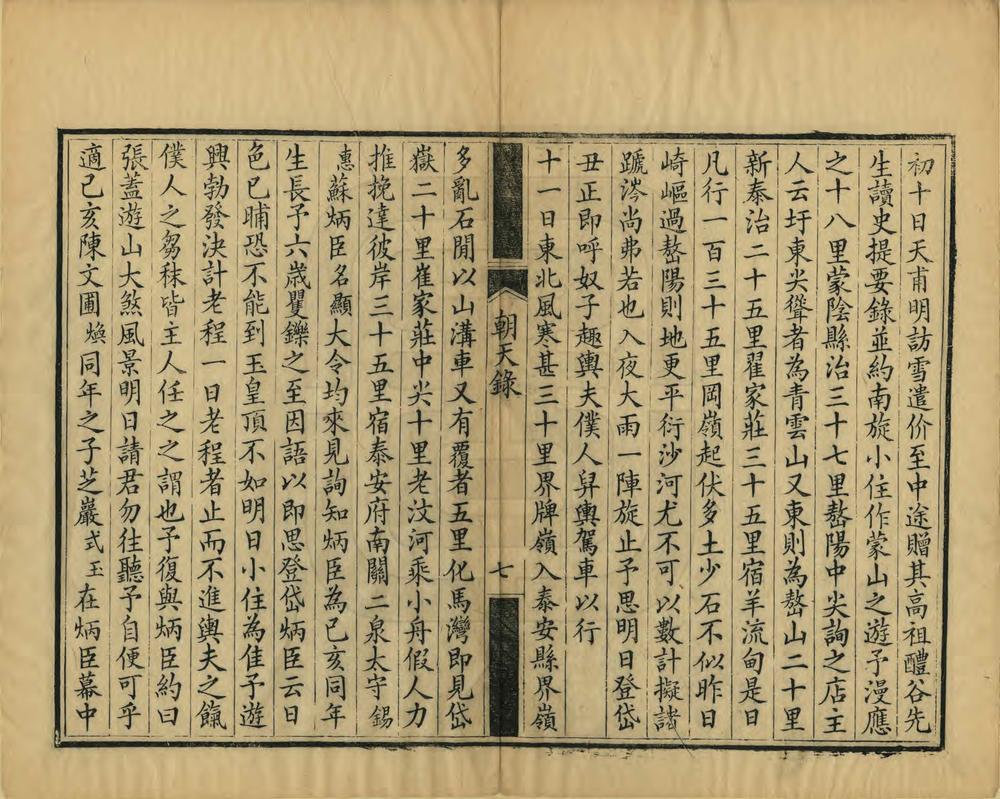 初十日天甫明訪雪遣价至中途贈其高祖醴谷先
生讀史提要錄並約南旋小住作蒙山之遊予漫應
之十八里蒙陰縣治三十七里嶅陽中尖詢之店主
人云圩東尖聳者為青雲山又東則為嶅山二十里
新泰治二十五里翟家莊三十五里宿羊流甸是日
凡行一百三十五里岡嶺起伏多土少石不似昨日
崎嶇過嶅陽則地更平衍沙河尤不可以數計擬諸
蹏涔尚弗若也入夜大雨一陣旋止予思明日登岱
丑正即呼奴子趣輿夫僕人舁輿駕車以行
十一日東北風寒甚三十里界牌嶺入泰安縣界嶺
朝天錄
七
多亂石閒以山溝車又有覆者五里化馬灣即見岱
嶽二十里崔家莊中尖十里老汶河乘小舟假人力
推挽達彼岸三十五里宿泰安府南關二泉太守錫
惠蘇炳臣名顯大令均來見詢知炳臣為己亥同年
生長予六歲矍鑠之至因語以即思登岱炳臣云日
色已晡恐不能到玉皇頂不如明日小住為佳予遊
興勃發決計老程一日老程者止而不進輿夫之餼
僕人之芻秣皆主人任之之謂也予復與炳臣約曰
張蓋遊山大煞風景明日請君勿往聽予自便可乎
適己亥陳文圃煥同年之子芝巖式玉在炳臣幕中